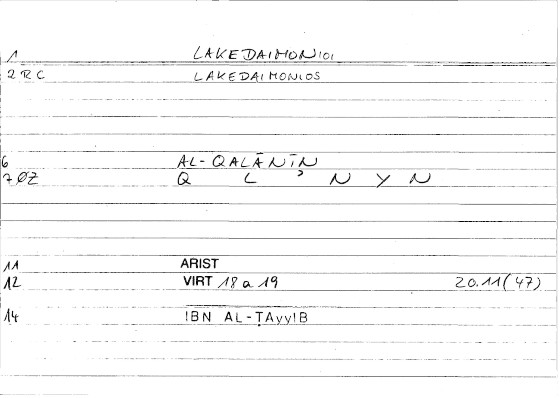 1 LAKEDAIMONIOI
2 RC LAKEDAIMONIOS
6 AL-QALĀNĪN
7 ØZ Q L ʾ N Y N
11 ARIST
12 VIRT 18 a 19 20.11(47)
14 IBN AL-ṬAyyIB